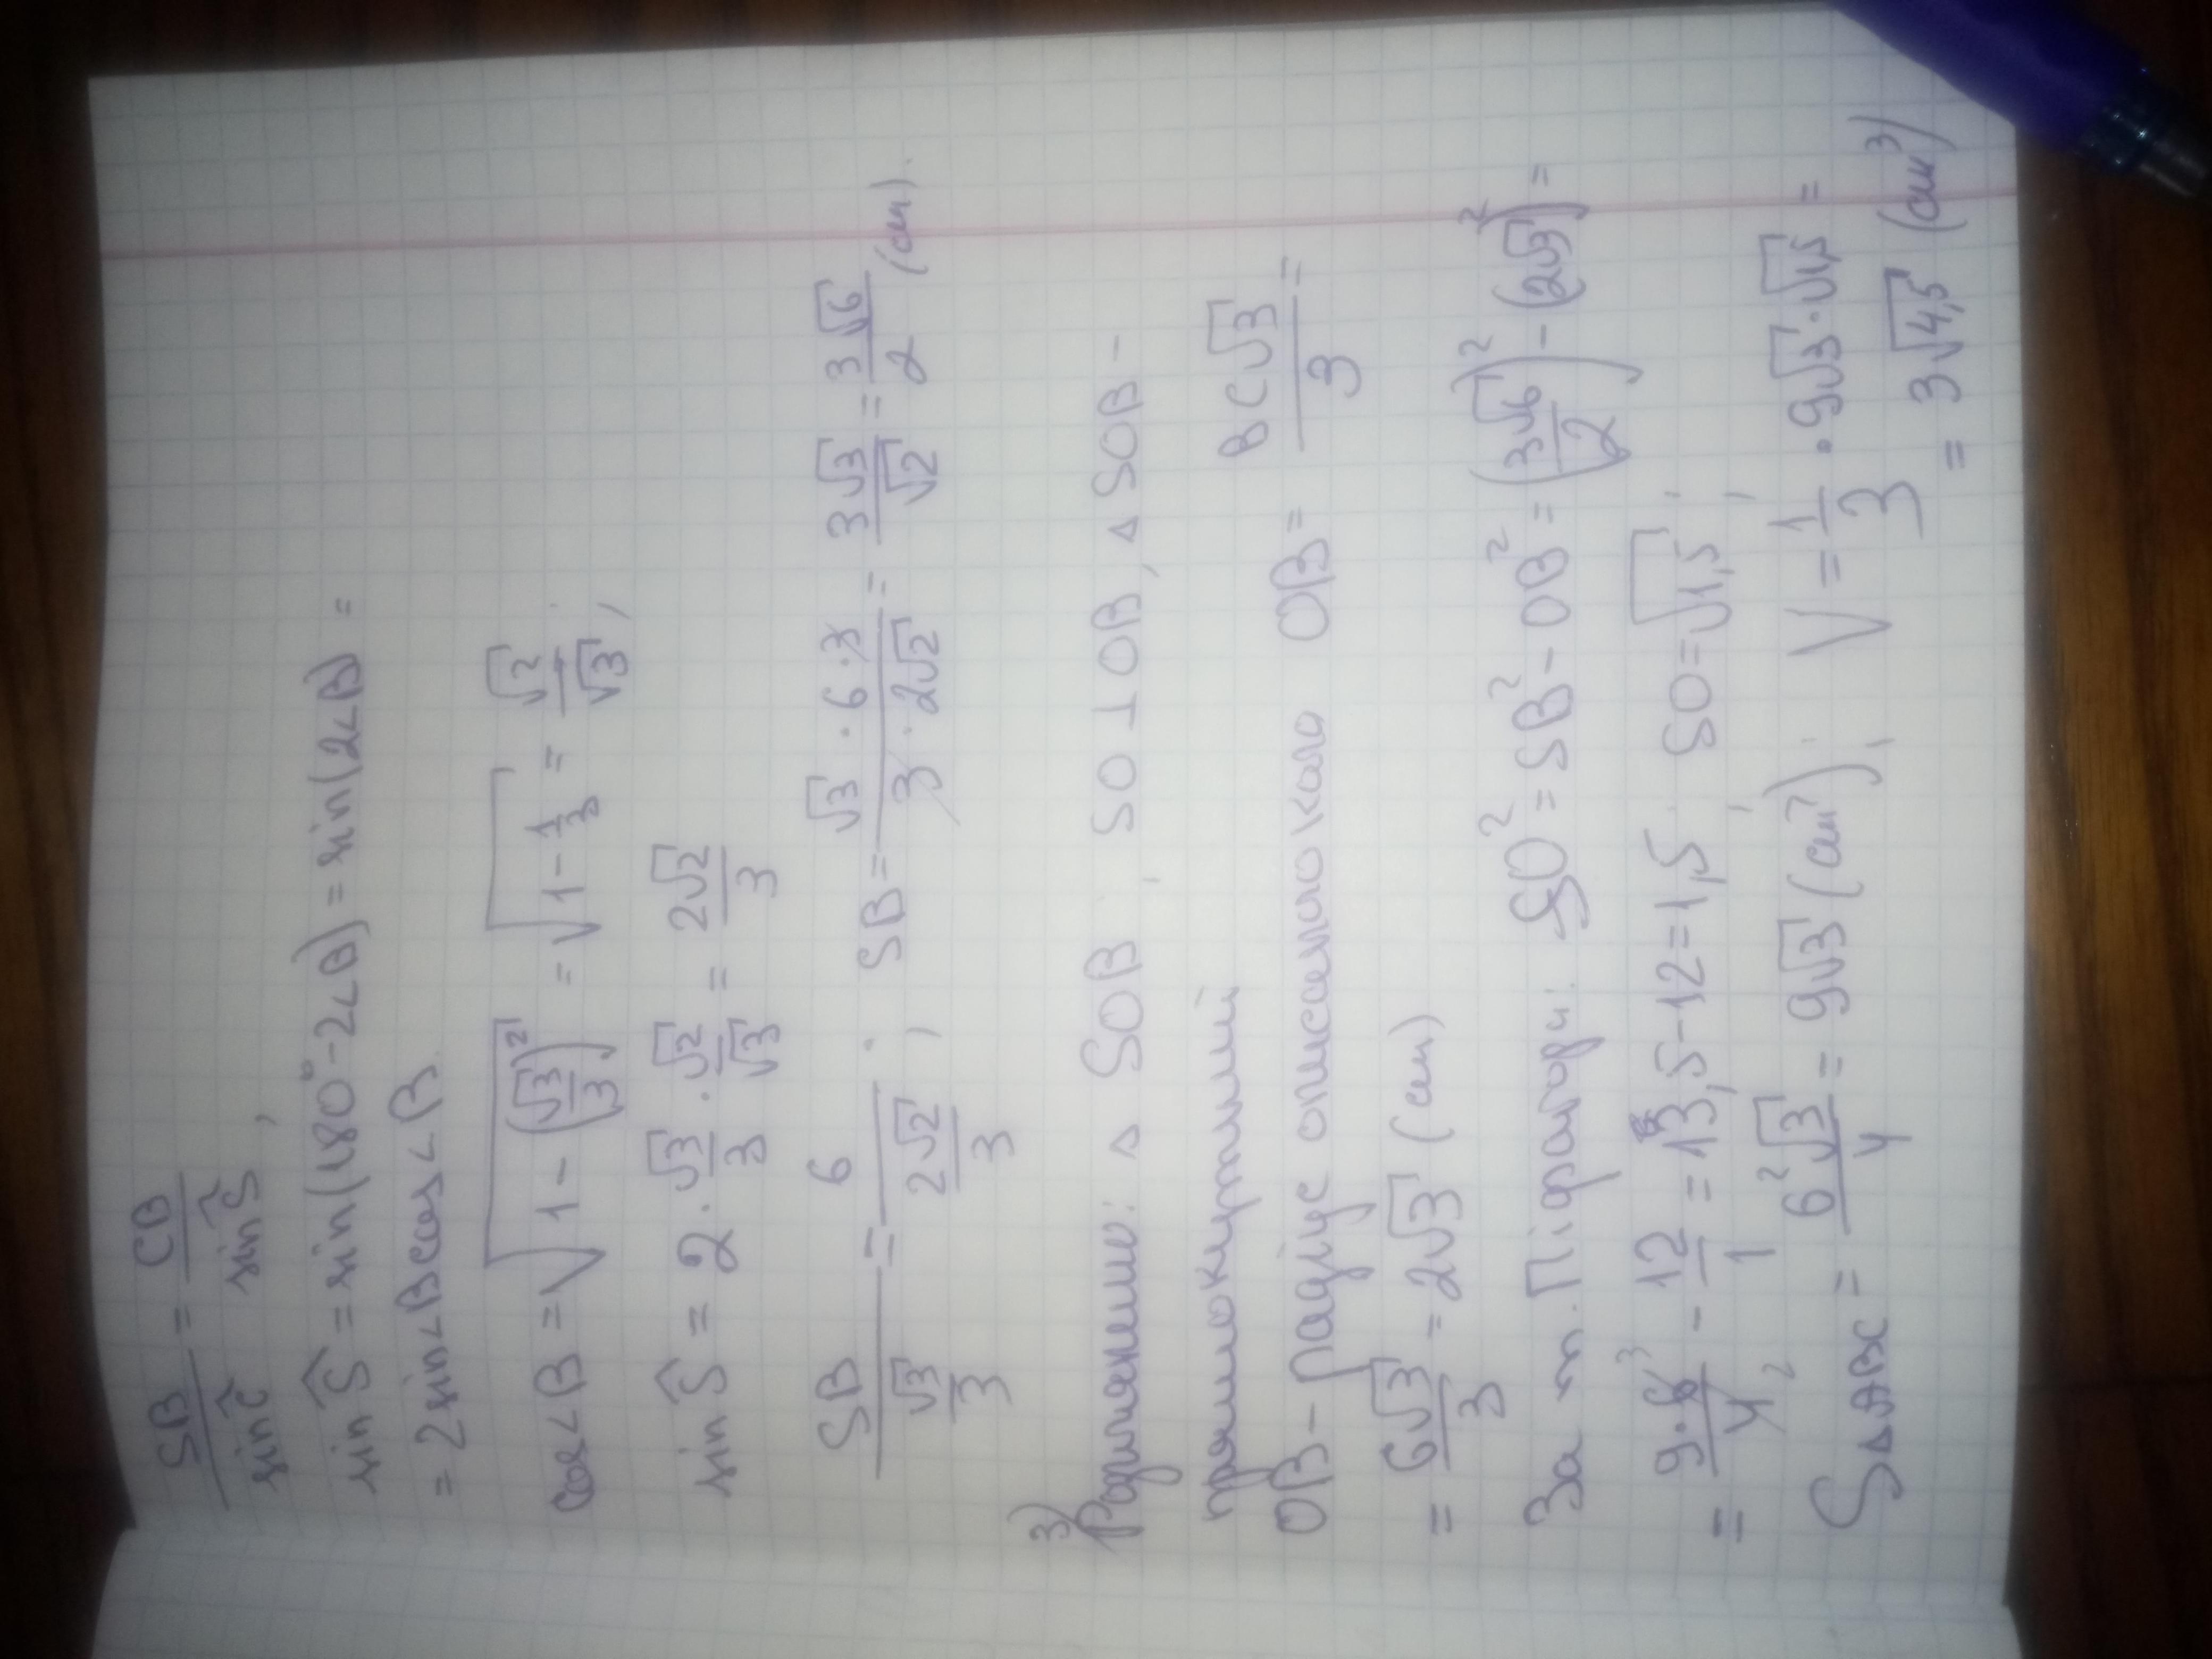 SB/sin Ĉ = CB/sin Ŝ,
sin Ŝ = sin(180° - 2∠B) = sin(2∠B) =
= 2 sin∠B cos∠B.
cos∠B = √(1 - (√3/3)²) = √(1 - 1/3) = √2/√3;
sin Ŝ = 2 · √3/3 · √2/√3 = 2√2/3
SB/(√3/3) = 6/(2√2/3); SB = √3 · 6 · 3/(3 · 2√2) = 3√3/√2 = 3√6/2 (см).
3) Розглянемо: △ SOB; SO ⊥ OB, △ SOB -
прямокутний
OB - радіус описаного кола OB = BC√3/3 =
= 6√3/3 = 2√3 (см)
За т. Піфагора: SO² = SB² - OB² = (3√6/2)² - (2√3)² =
= 9·6/4 - 12/1 = 13,5 - 12 = 1,5; SO = √1,5;
S△ABC = 6²√3/4 = 9√3 (см²); V = 1/3 · 9√3 · √1,5 =
= 3√4,5 (см³)